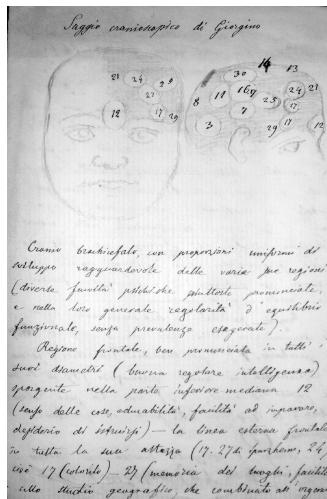 Saggio cranioscopico di Giorgino
21 24 29 27 12 17 29
14
30 13
8 11 16 9 25 24 21
17
3 7 29 17 12
Cranio brachicefalo, con proporzioni uniformi di
sviluppo ragguardevole delle varie sue regioni
(diverse facoltà psichiche piuttosto pronunciate,
e nella loro generale regolarità d'equilibrio
funzionale, senza prevalenza esagerata).
Regione frontale, ben pronunciata in tutti i
suoi diametri (buona regolare intelligenza)
sporgente nella parte inferiore mediana 12
(senso delle cose, educabilità, facilità ad imparare,
desiderio di istruirsi) — la linea esterna frontale
in tutta la sua altezza (17. 27 di 24
cioè 17 (colorito) — 27 (memoria dei luoghi, facilità
allo studio geografico, che combinato all'organo